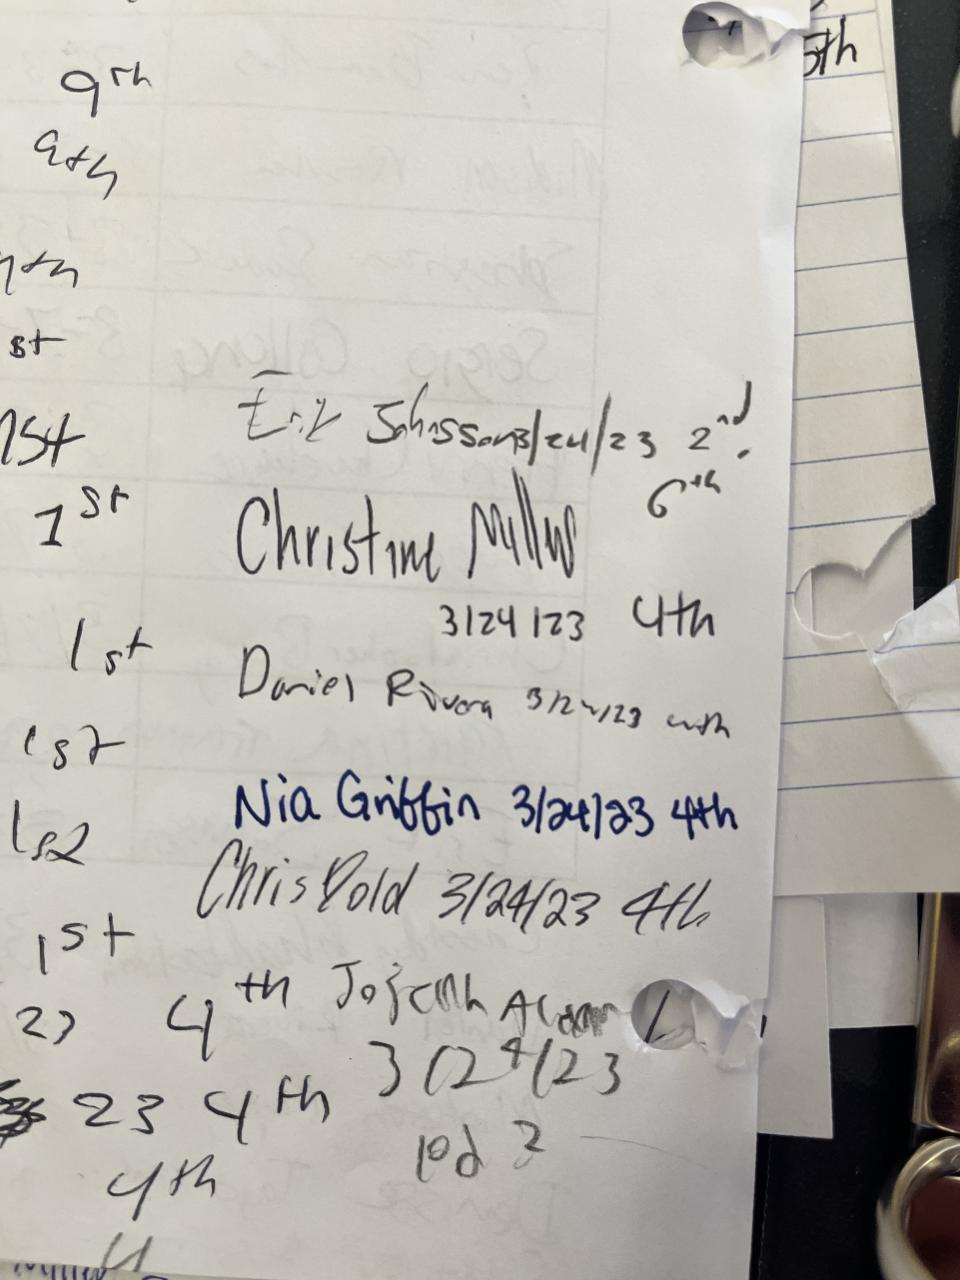 5th
9th
9th
st
1st
1st
Erik Johnson 3/24/23 2nd
6th
Christine Miller
3/24/23 4th
1st
Daniel Rivera 3/24/23 4th
1st
Nia Griffin 3/24/23 4th
1st
Chris Dold 3/24/23 4th
1st
23 4th Joseph
3/24/23
23 4th
pd 2
4th
4